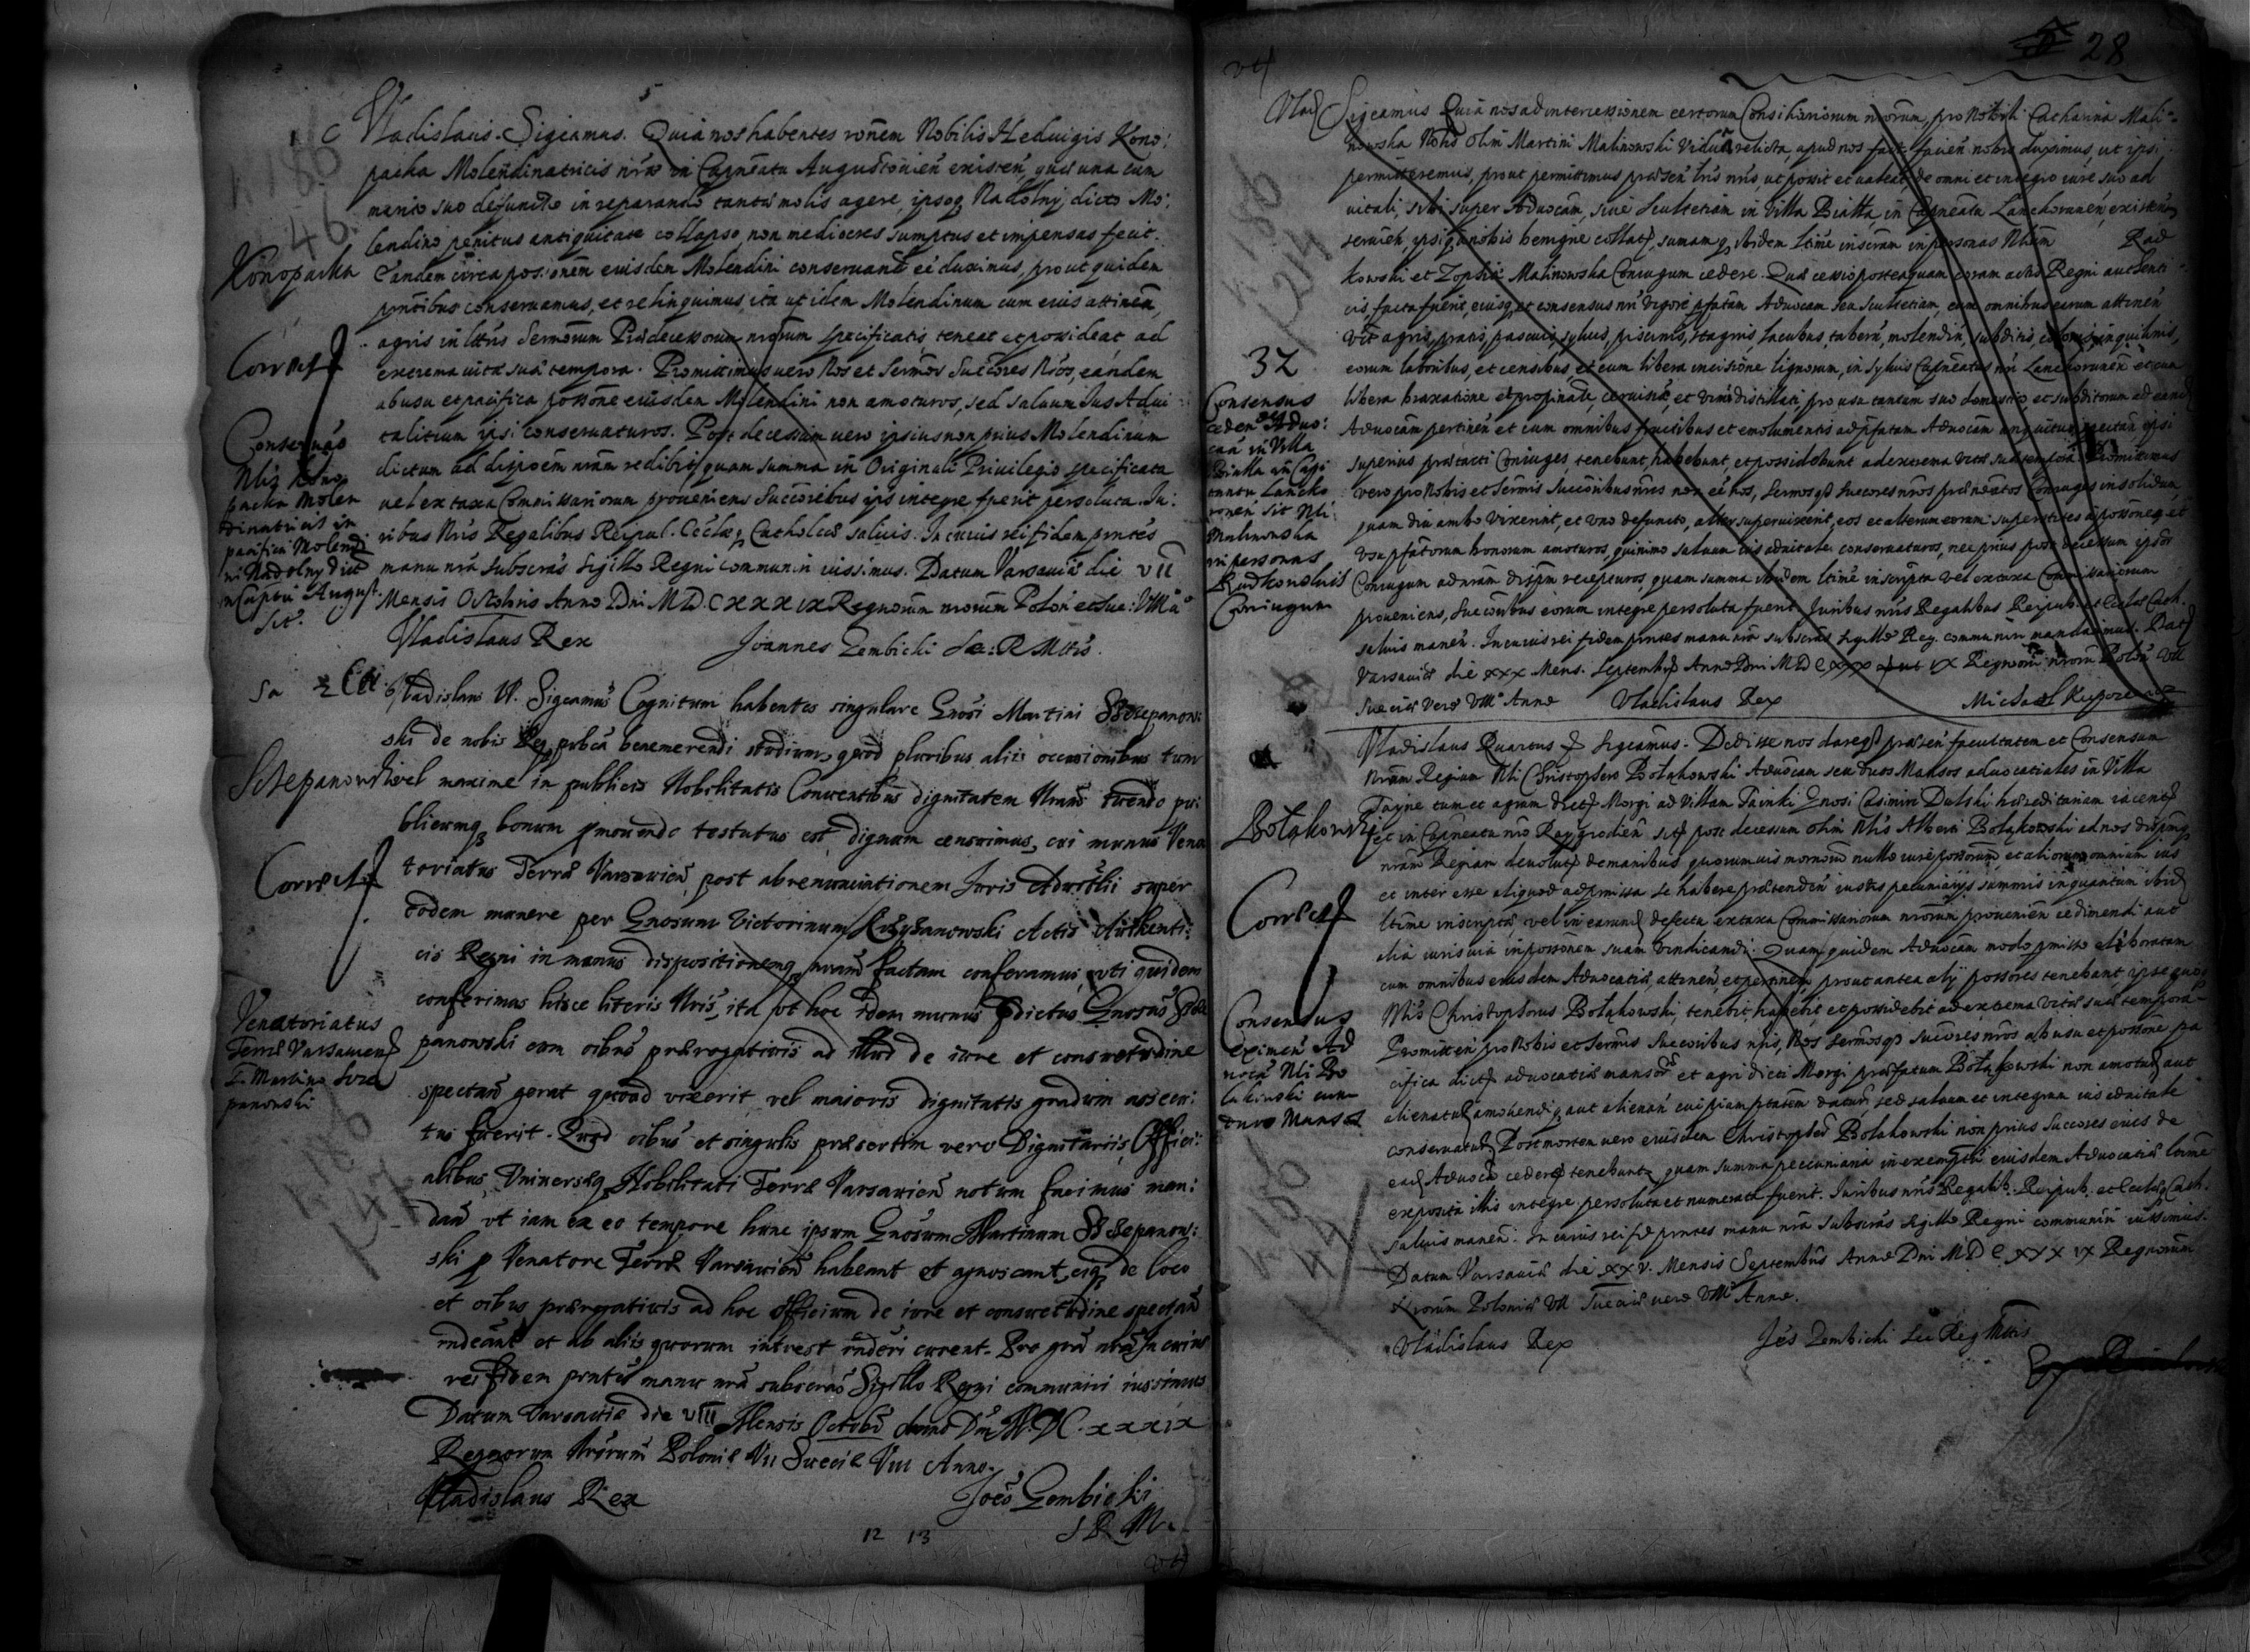 5
C Vladislaus. Sigcamus. Quia nos habentes rōnem Nobilis Heduigis Kono:
packa Molendinatricis nrae in Capneatu Augustonien existen, quae una cum
marito suo defuncto in reparando tantae molis agere, ipsoq Nadolny dicto Mo:
lendino penitus antiquitate collapso, non mediocres sumptus et impensas fecit.
Eandem circa possionem eiusdem Molendini conseruand eē duximus, prout quidem
pntibus conseruamus, et relinquimus, ita ut idem Molendinum cum eius attinen,
agris in lttris Sermorum Praedecessorum nrorum specificatis, teneat et possideat ad
extrema vitae suae tempora. Promittimus uero Nos et Sermos Succores Nros, eandem
ab usu et pacifica possone eiusdem Molendini non amoturos, sed saluum Jus Adui
talitium ipsi conseruaturos. Post decessum uero ipsius non prius Molendinum
dictum ad dispoem nram redibit, quam summa in Originali Priuilegio specificata
uel ex taxa Commissariorum proueniens Succoribus ipsi integre fuerit persoluta. Ju:
ribus Nris Regalibus Reipul. Ecclaeq Catholicae saluis. In cuius rei fidem pntes
manu nra subscras Sigillo Regni communiri iussimus. Datum Varsauiae die VII
Mensis Octobris Anno Dni MDCXXXIX Regnorum nrorum Polon et Sue: VIII ao
Vladislaus Rex Joannes Gembicki Sec: R Mttis.
K 186
46
Konopacka
Correct
Conseruao
Nlis Kono
packa Molen
dinatricis in
pacifica Molendi
ni Nadolny dict
in Captu August.
sit.
Vladislaus IV. Sigcamus Cognitum habentes singulare Gnosi Martini Szczepanow:
ski de nobis Req publca benemerendi studium, quod pluribus aliis occasionibus tum
vel maxime in publicis Nobilitatis Conuentibus dignitatem Nram tuendo pu:
blicumq bonum pmouendo testatus est, dignum censuimus, cui munus Vena
toriatus Terrae Varsauien, post abrenunciationem Juris Aduitlii super
eodem munere per Gnosum Victorinum Krzyzanowski Actis Authenti:
cis Regni in manus dispositionemq nram factam conferamus, uti quidem
conferimus hisce literis Nris, ita ut hoc idem munus pdictus Gnosus Szcze
panowski cum oibus praerogatiuis ad illud de iure et consuetudine
spectan gerat quoad vixerit, vel maioris dignitatis gradum assecu:
tus fuerit. Quod oibus et singulis praesertim vero Dignitariis, Offici:
alibus, Vniuersaeq Nobilitati Terrae Varsauien notum facimus man:
dan ut iam ex eo tempore hunc ipsum Gnosum Martinum Szczepanow:
ski p Venatore Terrae Varsauien habeant et agnoscant, eiq de loco
et oibus praerogatiuis ad hoc officium de iure et consuetudine spectan
rndeant et ab aliis quorum intrest rnderi curent. Pro gra nra In cuius
rei fidem pntes manu nra subscras Sigillo Regni communiri iussimus
Datum Varsauiae die VIII Mensis Octobr Anno Dni M.DC.XXXIX
Regnorum Nrorum Poloniae VII Sueciae VIII Anno.
Vladislaus Rex Joes Gembicki
S R M.
12 13
Szczepanowski
Correct
Venatoriatus
Terrae Varsauien
G. Martino Szcze
panowski
K 186
47
28
Vlad Sigcamus Quia nos ad intercessionem certorum Consiliariorum nrorum, pro Nobili Catharina Mali-
nowska Nlis olim Martini Malinowski Vidua relicta, apud nos fact facien nobis duximus, ut ipsi
permitteremus, prout permittimus praesen lris nris, ut possit et ualeat de omni et integro iure suo ad
uitali, sibi super Aduocam, siue Scultetiam in Villa Bialka, in Capneatu Lanckoronen existen
seruien, ipsiq a nobis benigne collat, sumamq ibidem ltime inscram in personas Nlium Rad
kowski et Zophiae Malinowska Coniugum cedere. Quae cessio posteaquam coram actis Regni authenti
cis, facta fuerit, eiusq et consensus nri vigore pfatam Aduocam seu Scultetiam, cum omnibus eorum attinen
vtt agris, pratis, pascuis, syluis, piscinis, stagnis, lacubus, tabern, molendin, subditis, colonis, inquilinis,
eorum laboribus, et censibus et cum libera incisione lignorum, in syluis Capneatus nri Lanckoronen et cum
libera braxatione et propinate, ceruisiae, et vini distillati, pro usu tantum suo domestico, et subditorum ad eand
Aduocam pertinen et cum omnibus fructibus et emolumentis ad pfatam Aduocam antiquitus spectan ipsi
superius praetacti Coniuges, tenebunt, habebunt, et possidebunt ad extrema vitae suae tempora. Promittimus
vero pro Nobis et Sermis Succoribus nris non eē nos, Sermosq Succores nros praenoatos Coniuges insolidum,
quam diu ambo vixerint, et uno defuncto, alter superuixerit, eos et alterum eorum superstites a possione et
usu pfatorum bonorum amoturos, quinimo saluum ius aduitale conseruaturos, nec prius post decessum ipsor
Coniugum ad nram dispm recepturos, quam summa ibidem ltime inscripta vel ex taxa Commissariorum
proueniens, Succoribus eorum integre persoluta fuerit. Juribus nris Regalibus Reipub. et Ecclae Cath.
saluis manen. In cuius rei fidem pntes manu nra subscras sigillo Reg. communiri mandauimus. Dat
Varsauiae die XXX Mens. Septembr Anno Dni MDCXXXIX Regnorum nrorum Polon VII
Sueciae vero VIII Anno Vladislaus Rex Michael
K 186
214
32
Consensus
ceden Aduo:
cam in Villa
Bialka in Capi
taneatu Lancko
ronen sit Nli
Malinowska
in personas
Radkowskis
Coniugum
Vladislaus Quartus Sigcamus. Dedisse nos dareq praesen facultatem et Consensum
nrum Regium Nli Christophoro Bolakowski Aduocam seu duos Mansos aduocatiales in Villa
Tayne tum et agrum dict Morgi ad Villam Tainki Gnosi Casimiri Dulski haereditariam iacent
et in Capneatu nro Raygrodien sit post decessum olim Nlis Alberti Bolakowski ad nos dispmq
nram Regiam deuolut de manibus quorumuis mornum nullo iure possorum, et aliorum omnium ius
et inter esse aliquod ad pmissa se habere praetenden iustis pecuniarijs summis in quantum ibid
ltime inscriptae vel in earund defectu ex taxa Commissariorum nrorum prouenien redimendi aut
alia iuris uia in possonem suam vindicandi. Quam quidem Aduocam modo pmisso eliberatam
cum omnibus eiusdem Aduocatiae attinen, et pertinen, prout antea alij possores tenebant, ipse quoq
Nlis Christophorus Bolakowski, tenebit, habebit, et possidebit ad extrema vitae suae tempora.
Promitten pro Nobis et Sermis Succoribus nris, Nos Sermosq Succores nros ab usu et possone pa
cifica dict aduocatiae mansor et agri dicti Morgi praefatum Bolakowski non amotur aut
alienatur amouendiq aut alienan cuipiam ptatem datur, sed saluum et integrum ius aduitale
conseruatur Post mortem uero eiusdem Christophori Bolakowski non prius Succores eius de
ead Aduoca cedere tenebunt, quam summa pecuniaria in exemptn eiusdem Aduocatiae ltime
exposita illis integre persoluta et numerata fuerit. Juribus nris Regalib. Reipub. et Ecclae Cath.
saluis manen. In cuius rei fid pntes manu nra subscras Sigillo Regni communiri iussimus.
Datum Varsauiae die XXV. Mensis Septembris Anno Dni MDCXXXIX Regnorum
Nrorum Poloniae VII Sueciae uero VIII Anno.
Vladislaus Rex Jes Gembicki Sec Reg Mttis
Bolakowski
Correct
Consensus
eximen Ad
uocam Nli Bo
lakowski cum
duos Mansos
K 186